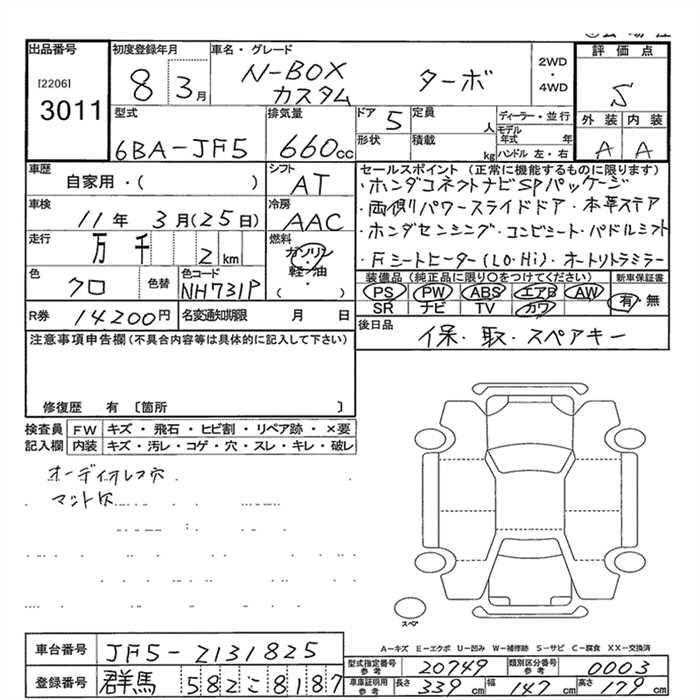 出品番号
[2206]
3011
初度登録年月
8 3月
車名・グレード
N-BOX
カスタム
ターボ
2WD
・
4WD
評価点
S
外装 内装
A A
型式
6BA-JF5
排気量
660cc
ドア 5
形状
定員 人
積載 kg
ディーラー・並行
モデル年式 年
ハンドル 左・右
車歴
自家用・( )
シフト
AT
車検
11年 3月(25日)
冷房
AAC
走行
万 千 2 km
燃料
ガソリン
軽・油
( )
色
クロ
色替
色コード
NH731P
R券 14200円
名変通知期限 月 日
セールスポイント (正常に機能するものに限ります)
・ホンダコネクトナビSPパッケージ
・両側パワースライドドア・本革ステア
・ホンダセンシング・コンビシート・パドルシフト
・Fシートヒーター(LO・Hi)・オートリトラミラー
装備品 (純正品に限り○をつけてください)
PS PW ABS エアB AW
SR ナビ TV カワ
新車保証書
有・無
後日品
保・取・スペアキー
注意事項申告欄(不具合内容等は具体的に記入して下さい)
修復歴 有 〔箇所 〕
検査員 FW キズ・飛石・ヒビ割・リペア跡・×要
記入欄 内装 キズ・汚レ・コゲ・穴・スレ・キレ・破レ
オーディオレス穴
マット欠
スペア
A-キズ E-エクボ U-凹み W-補修跡 S-サビ C-腐食 XX-交換済
車台番号 JF5-2131825
登録番号 群馬 582こ8187
型式指定番号 参考 20749
類別区分番号 参考 0003
車庫証明用 参考 長さ 339cm 幅 147cm 高さ 179cm